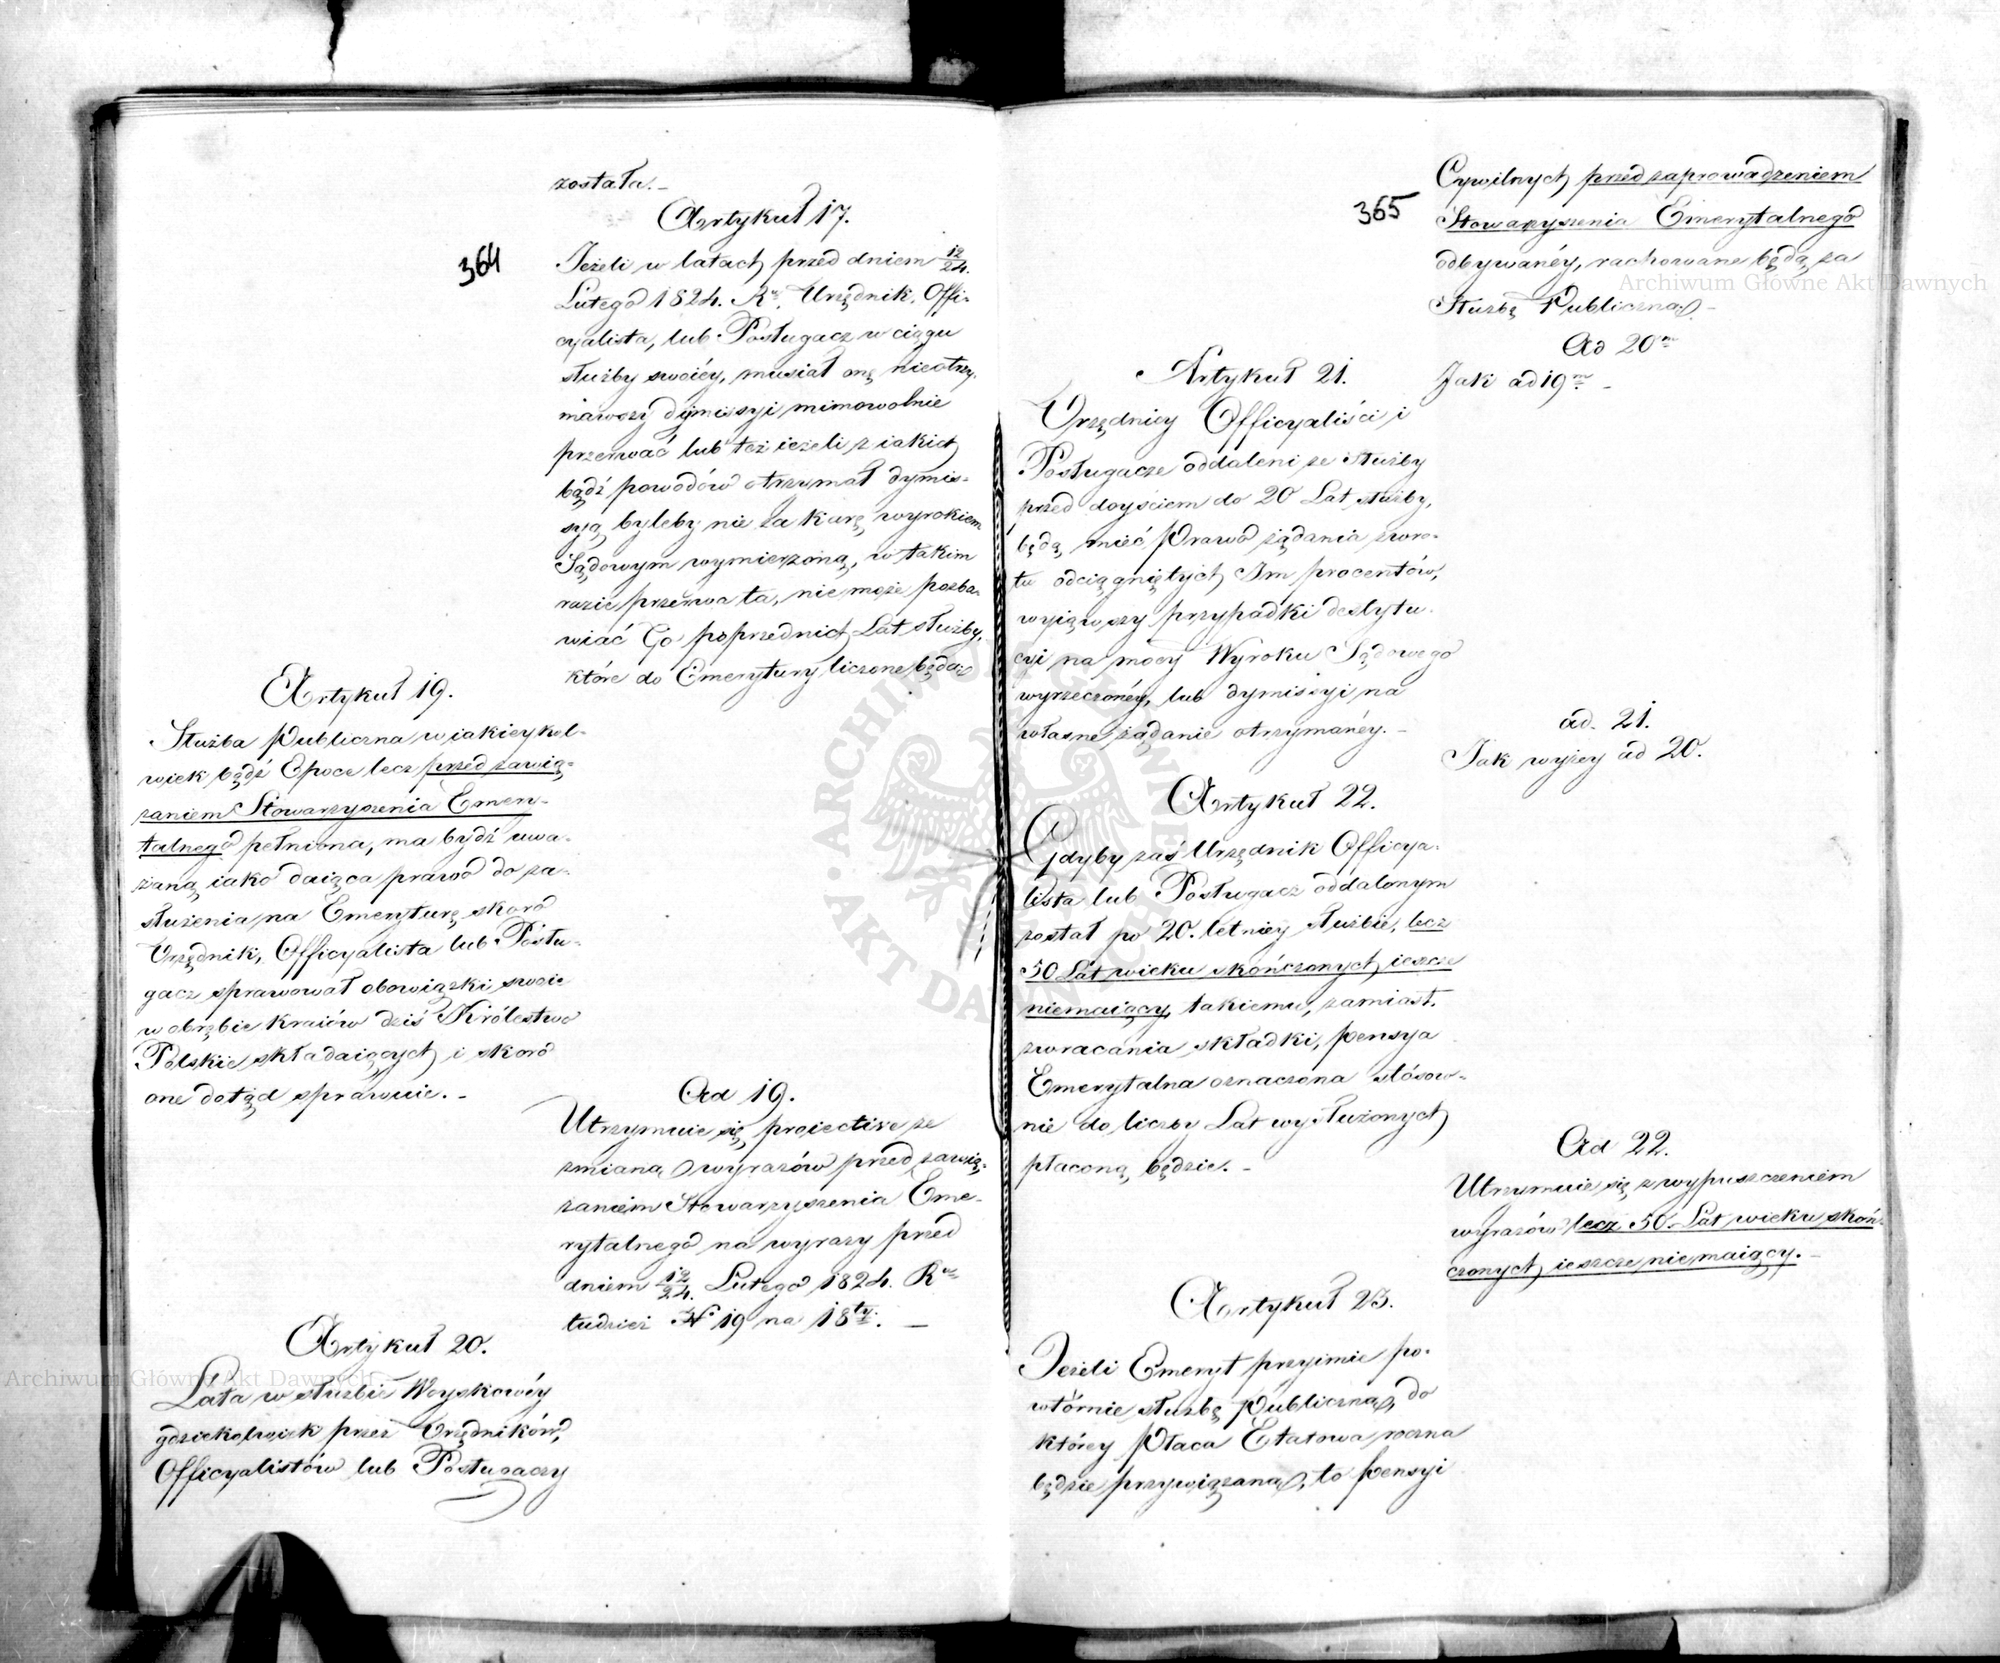 364
została. –
Artykuł 17.
Jeżeli w latach przed dniem 12/24.
Lutego 1824. Ru. Urzędnik, Offi-
cyalista, lub Posługacz w ciągu
służby swoiéy, musiał onę nieotrzy-
mawszy dymissyi mimowolnie
przerwać lub też ieżeli z iakich
bądź powodów otrzymał dymis-
syą, byleby nie za karę, wyrokiem
Sądowym wymierzoną, w takim
razie przerwa ta, nie może pozba-
wiać Go poprzednich Lat służby,
które do Emerytury liczone będą
Artykuł 19.
Służba Publiczna w iakieykol-
wiek bądź Epoce lecz przed zawią-
zaniem Stowarzyszenia Emery-
talnego pełniona, ma bydź uwa-
żaną iako daiąca prawo do za-
służenia na Emeryturę skoro
Urzędnik, Officyalista lub Posłu-
gacz sprawował obowiązki swoie
w obrębie kraiów dziś Królestwo
Polskie składaiących i skoro
one dotąd sprawuie. –
Ad 19.
Utrzymuie się proiective ze
zmianą wyrazów przed zawią-
zaniem Stowarzyszenia Eme-
rytalnego na wyrazy przed
dniem 12/24. Lutego 1824. Ru
tudzież N 19 na 18ty. –
Artykuł 20.
Lata w służbie Woyskowéy
gdziekolwiek przez Urzędników,
Officyalistów lub Posługaczy
365
Cywilnych przed zaprowadzeniem
Stowarzyszenia Emerytalnego
odbywanéy, rachowane będą za
Służbę Publiczną. –
Ad 20m
Jak ad 19m. –
Artykuł 21.
Urzędnicy Officyaliści i
Posługacze oddaleni ze służby
przed doyściem do 20 Lat służby,
będą mieć Prawo żądania zwro-
tu odciągniętych Im procentów,
wyiąwszy przypadki destytu-
cyi na mocy Wyroku Sądowego
wyrzeczonéy, lub dymissyi na
własne żądanie otrzymanéy. –
ad. 21.
Jak wyżey ad 20.
Artykuł 22.
Gdyby zaś Urzędnik Officya-
lista lub Posługacz oddalonym
został po 20. letniey służbie, lecz
50 Lat wieku skończonych ieszcze
niemaiący, takiemu, zamiast
zwracania składki, pensya
Emerytalna oznaczona stósow-
nie do liczby Lat wysłużonych
płaconą będzie. –
Ad 22.
Utrzymuie się z wypuszczeniem
wyrazów lecz 50. Lat wieku skoń-
czonych ieszcze niemaiący. –
Artykuł 23.
Jeżeli Emeryt przyimie po-
wtórnie służbę Publiczną, do
którey Płaca Etatowa roczna
będzie przywiązaną, to pensyi
Archiwum Główne Akt Dawnych
Archiwum Główne Akt Dawnych
ARCHIWUM GŁÓWNE · AKT DAWNYCH ·